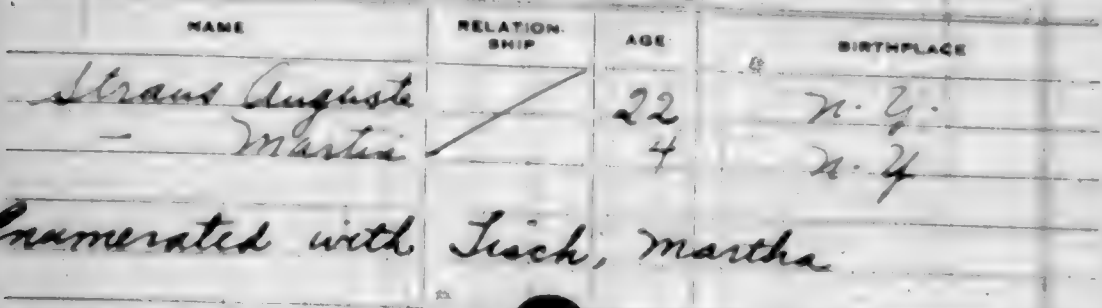 NAME RELATION- SHIP AGE BIRTHPLACE
Straus Auguste 22 N. Y.
— Martin 4 N. Y
Enumerated with Tisch, Martha